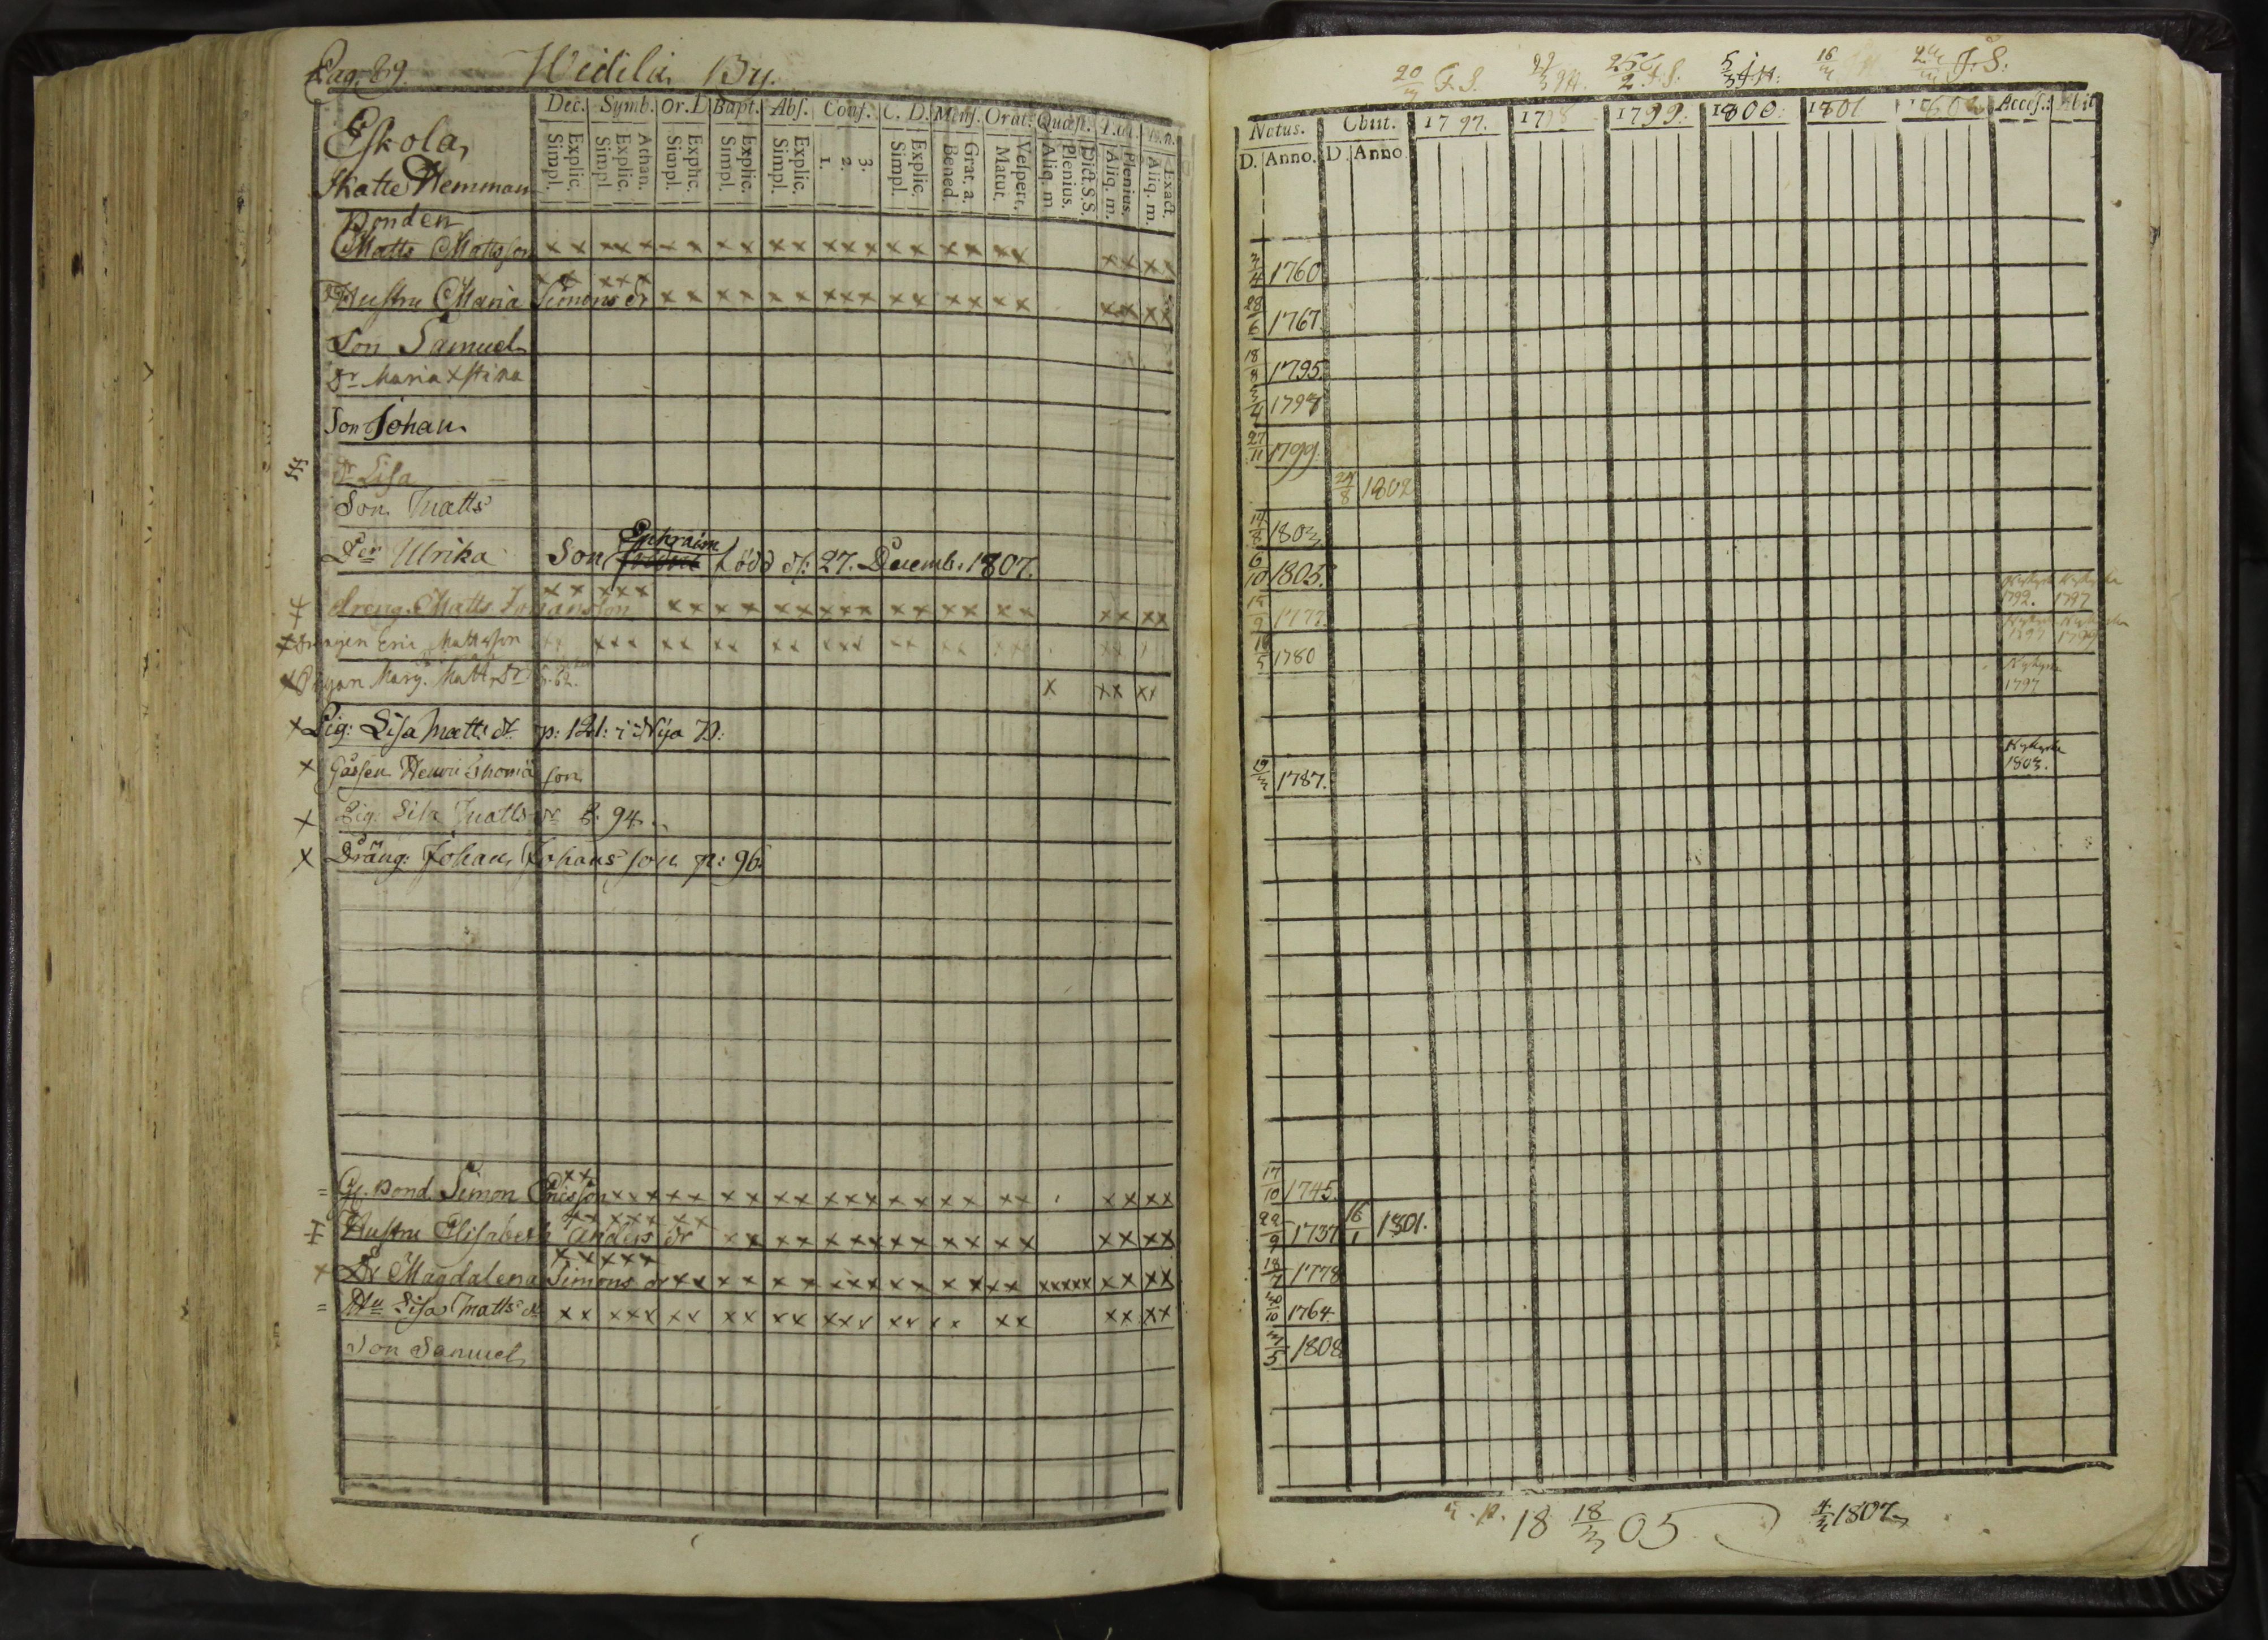 Pag. 89. Widila By.
Dec. Symb. Or. D Bapt. Abs. Conf. C. D. Mens. Orat. Quæst.
Simpl. Explic. Simpl Explic. Athan. Simpl. Explic. Simpl. Explic. Simpl. Explic. 1. 2. 3. Simpl. Explic. Bened. Grat. a. Matut. Vespert. Aliq. m Plenius. Dict. S.S. Aliq. m. Plenius. Aliq. m. Exact.
Eskola,
Skatte Hemman
Bonden
Matts Mattsson
Hustru Maria Simons dr
Son Samuel
Dr Maria Xstina
Son Johan
Dr Lisa
Son Matts
Dr Ulrika Son Ephraim född d: 27. Decemb. 1807.
dreng. Matts Johansson
Drengen Eric Mattsson
Pigan Marg. Matts Dr
Pig: Lisa Matts dr p: 121: i Nya B:
Gåssen Henric Thomæ son
Pig. Lisa Matts dr P. 94.
Dräng: Johan Johans son p: 96.
Gl. Bond. Simon Ericsson
Hustru Elisabeth Anders dr
Dr Magdalena Simons dr
Hu Lisa Matts dr
Son Samuel
20/3 F. S. 5/3 16/3 J. S.
Natus. Obiit. 1797. 1798 1799. 1800. 1801 1802 Access. Abit
D. Anno. D. Anno
3/4 1760
28/6 1767.
18/8 1795.
1797
27/11 1799.
24/8 1802
14/2 1803
6/10 1805.
1792. 1797
1777.
1797 1799
18/5 1780
1797
19/3 1787.
1803.
17/10 1745.
22/9 1737 16/1 1801.
18/7 1778
30/10 1764.
3/5 1808
18 18/3 05 4/3 1807